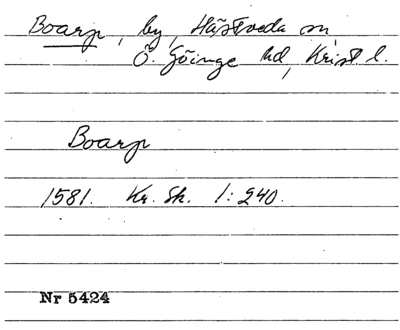 Boarp, by, Hästveda sn,
Ö. Göinge hd, Krist. l.
Boarp
1581. Kr. Sk. 1:240.
Nr 5424